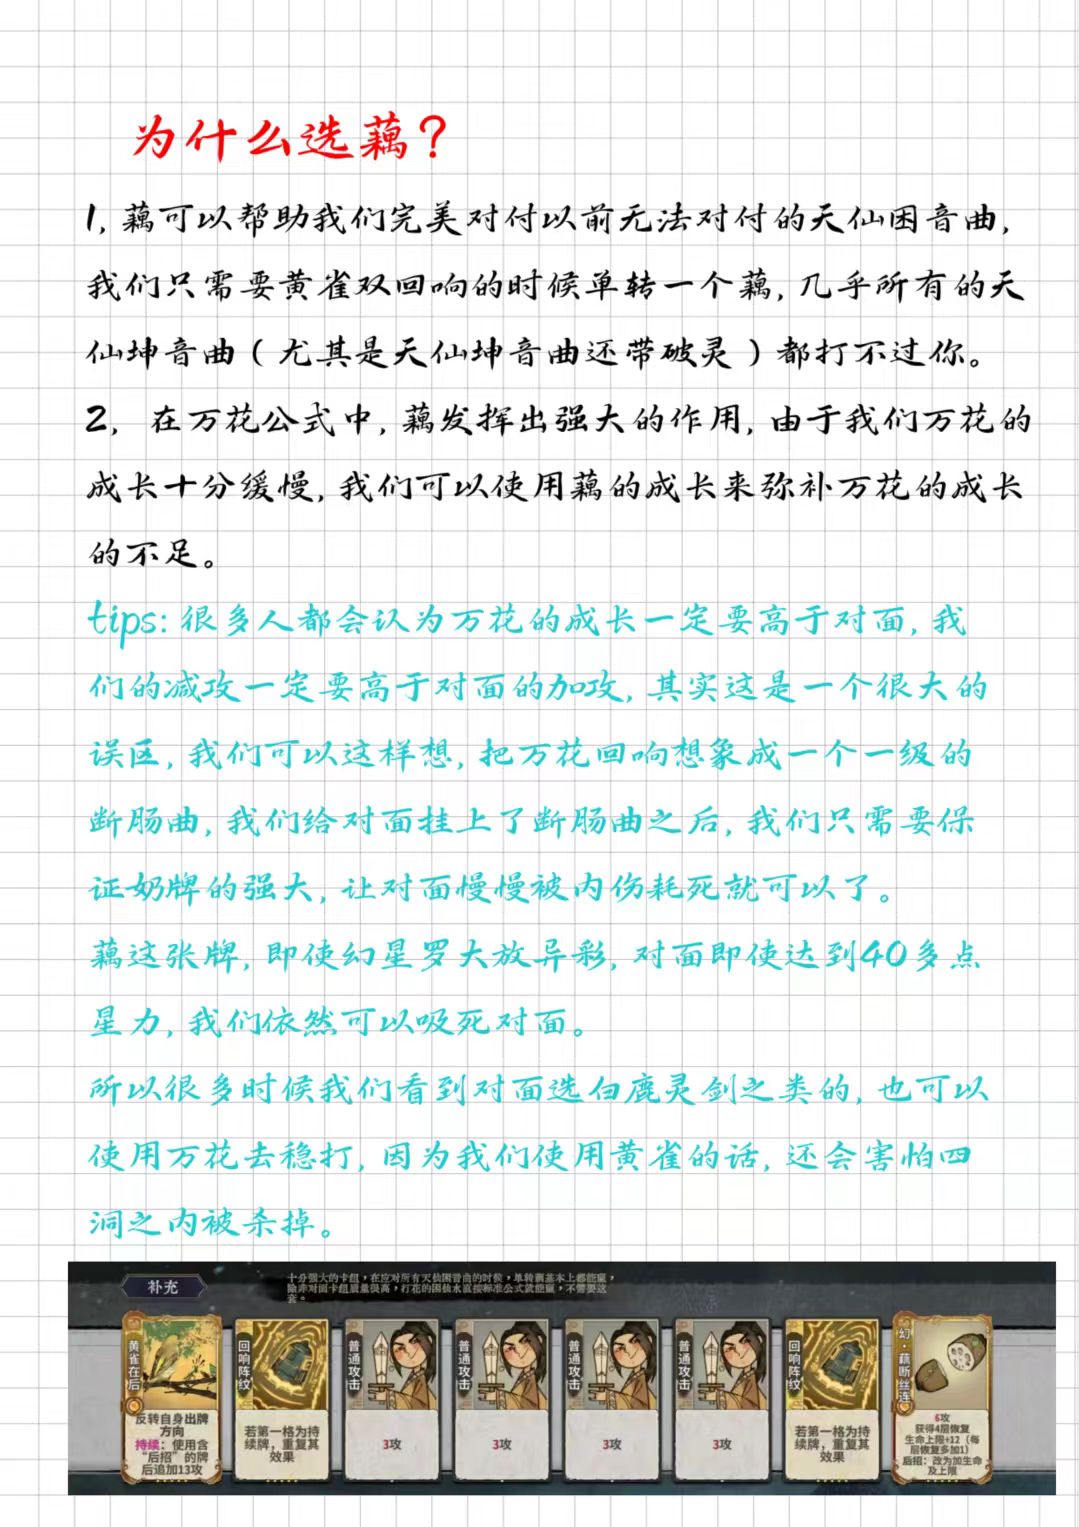 为什么选藕？
1, 藕可以帮助我们完美对付以前无法对付的天仙困音曲,
我们只需要黄雀双回响的时候单转一个藕, 几乎所有的天
仙坤音曲（尤其是天仙坤音曲还带破灵）都打不过你。
2, 在万花公式中, 藕发挥出强大的作用, 由于我们万花的
成长十分缓慢, 我们可以使用藕的成长来弥补万花的成长
的不足。
tips: 很多人都会认为万花的成长一定要高于对面, 我
们的减攻一定要高于对面的加攻, 其实这是一个很大的
误区, 我们可以这样想, 把万花回响想象成一个一级的
断肠曲, 我们给对面挂上了断肠曲之后, 我们只需要保
证奶牌的强大, 让对面慢慢被内伤耗死就可以了。
藕这张牌, 即使幻星罗大放异彩, 对面即使达到40多点
星力, 我们依然可以吸死对面。
所以很多时候我们看到对面选白鹿灵剑之类的, 也可以
使用万花去稳打, 因为我们使用黄雀的话, 还会害怕四
洞之内被杀掉。
补充
十分强大的卡组，在应对所有天仙困音曲的时候，单转藕基本上都能赢，
除非对面卡组质量很高，打花的困仙水直接标准公式就能赢，不需要这
套。
黄雀在后
反转自身出牌
方向
持续：使用含
“后招”的牌
后追加13攻
回响阵纹
若第一格为持
续牌，重复其
效果
普通攻击
3攻
普通攻击
3攻
普通攻击
3攻
普通攻击
3攻
回响阵纹
若第一格为持
续牌，重复其
效果
幻·藕断丝连
6攻
获得4层恢复
生命上限+12（每
层恢复多加1）
后招：改为加生命
及上限